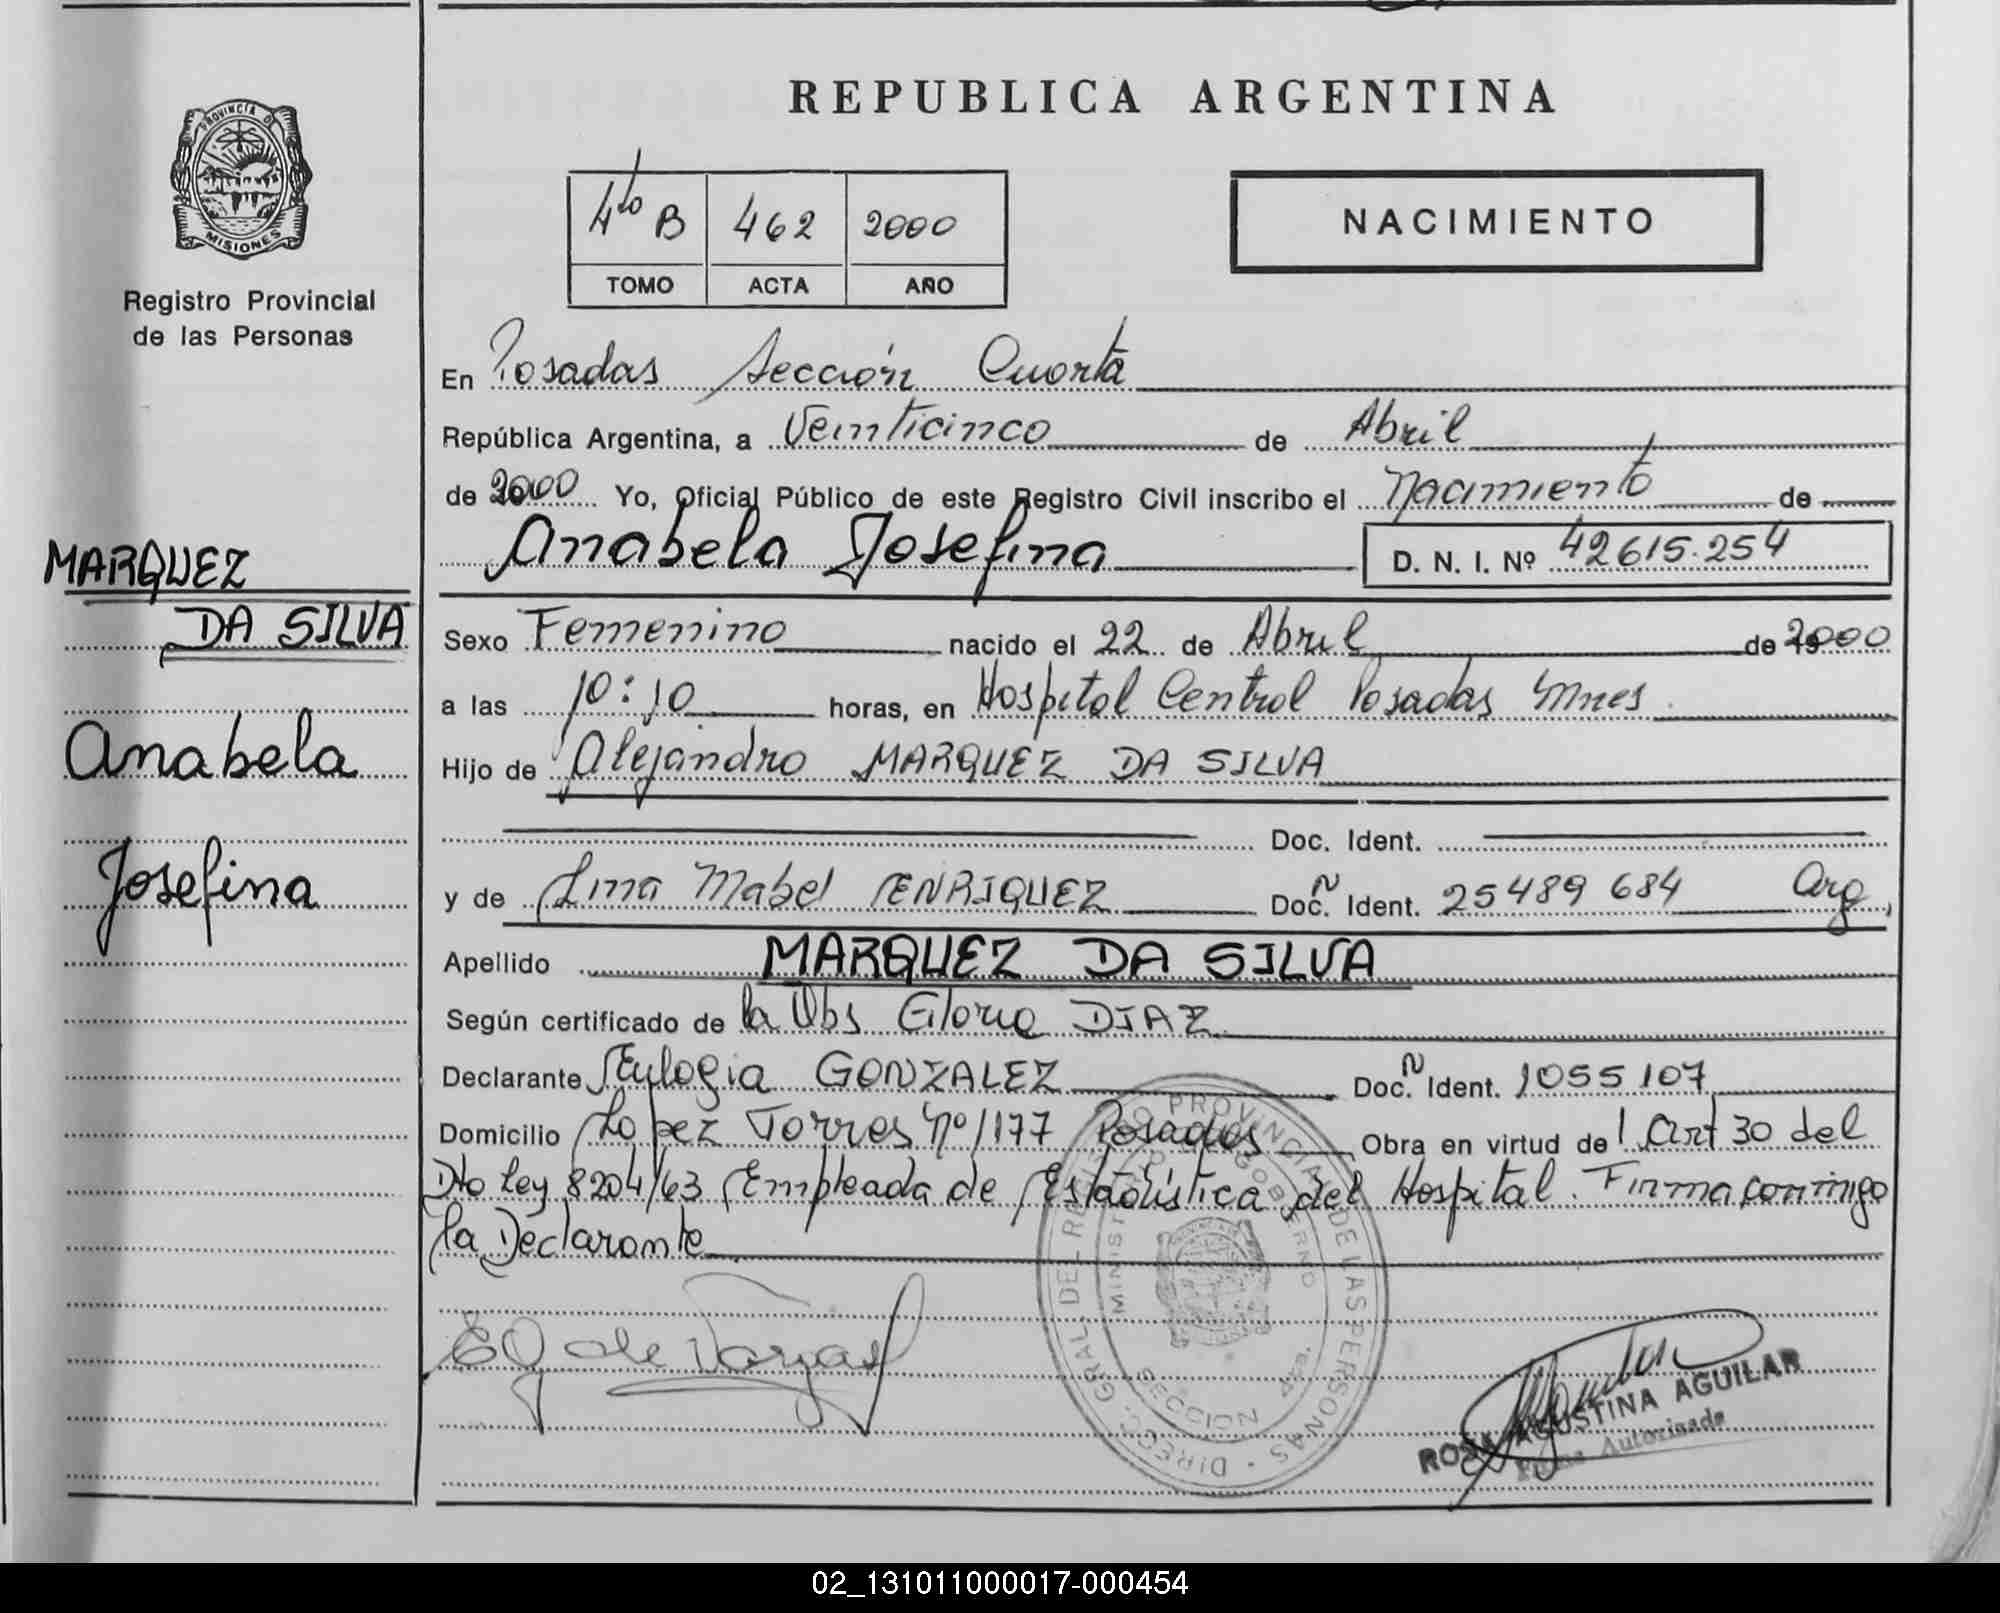 REPUBLICA ARGENTINA
PROVINCIA DE
MISIONES
Registro Provincial
de las Personas
4to B 462 2000
TOMO ACTA AÑO
NACIMIENTO
En Posadas Sección Cuarta
República Argentina, a Veinticinco de Abril
de 2000 Yo, Oficial Público de este Registro Civil inscribo el Nacimiento de
Anabela Josefina D. N. I. Nº 42615.254
MARQUEZ
DA SILVA
Anabela
Josefina
Sexo Femenino nacido el 22 de Abril de 2000
a las 10:10 horas, en Hospital Central Posadas Mnes
Hijo de Alejandro MARQUEZ DA SILVA
Doc. Ident.
y de Lina Mabel ENRIQUEZ Doc. N Ident. 25489 684 Arg,
Apellido MARQUEZ DA SILVA
Según certificado de la Obs Gloria DIAZ
Declarante Eulogia GONZALEZ Doc. N Ident. 1055107
Domicilio Lopez Torres Nº 1177 Posadas Obra en virtud del Art 30 del
Dto Ley 8204/63 Empleada de Estadística del Hospital. Firma conmigo
la Declarante
EG de Vargas
DIRECC. GRAL. DEL REGISTRO PROVINCIAL DE LAS PERSONAS
ROSA AGUSTINA AGUILAR
Firma Autorizada
02_131011000017-000454